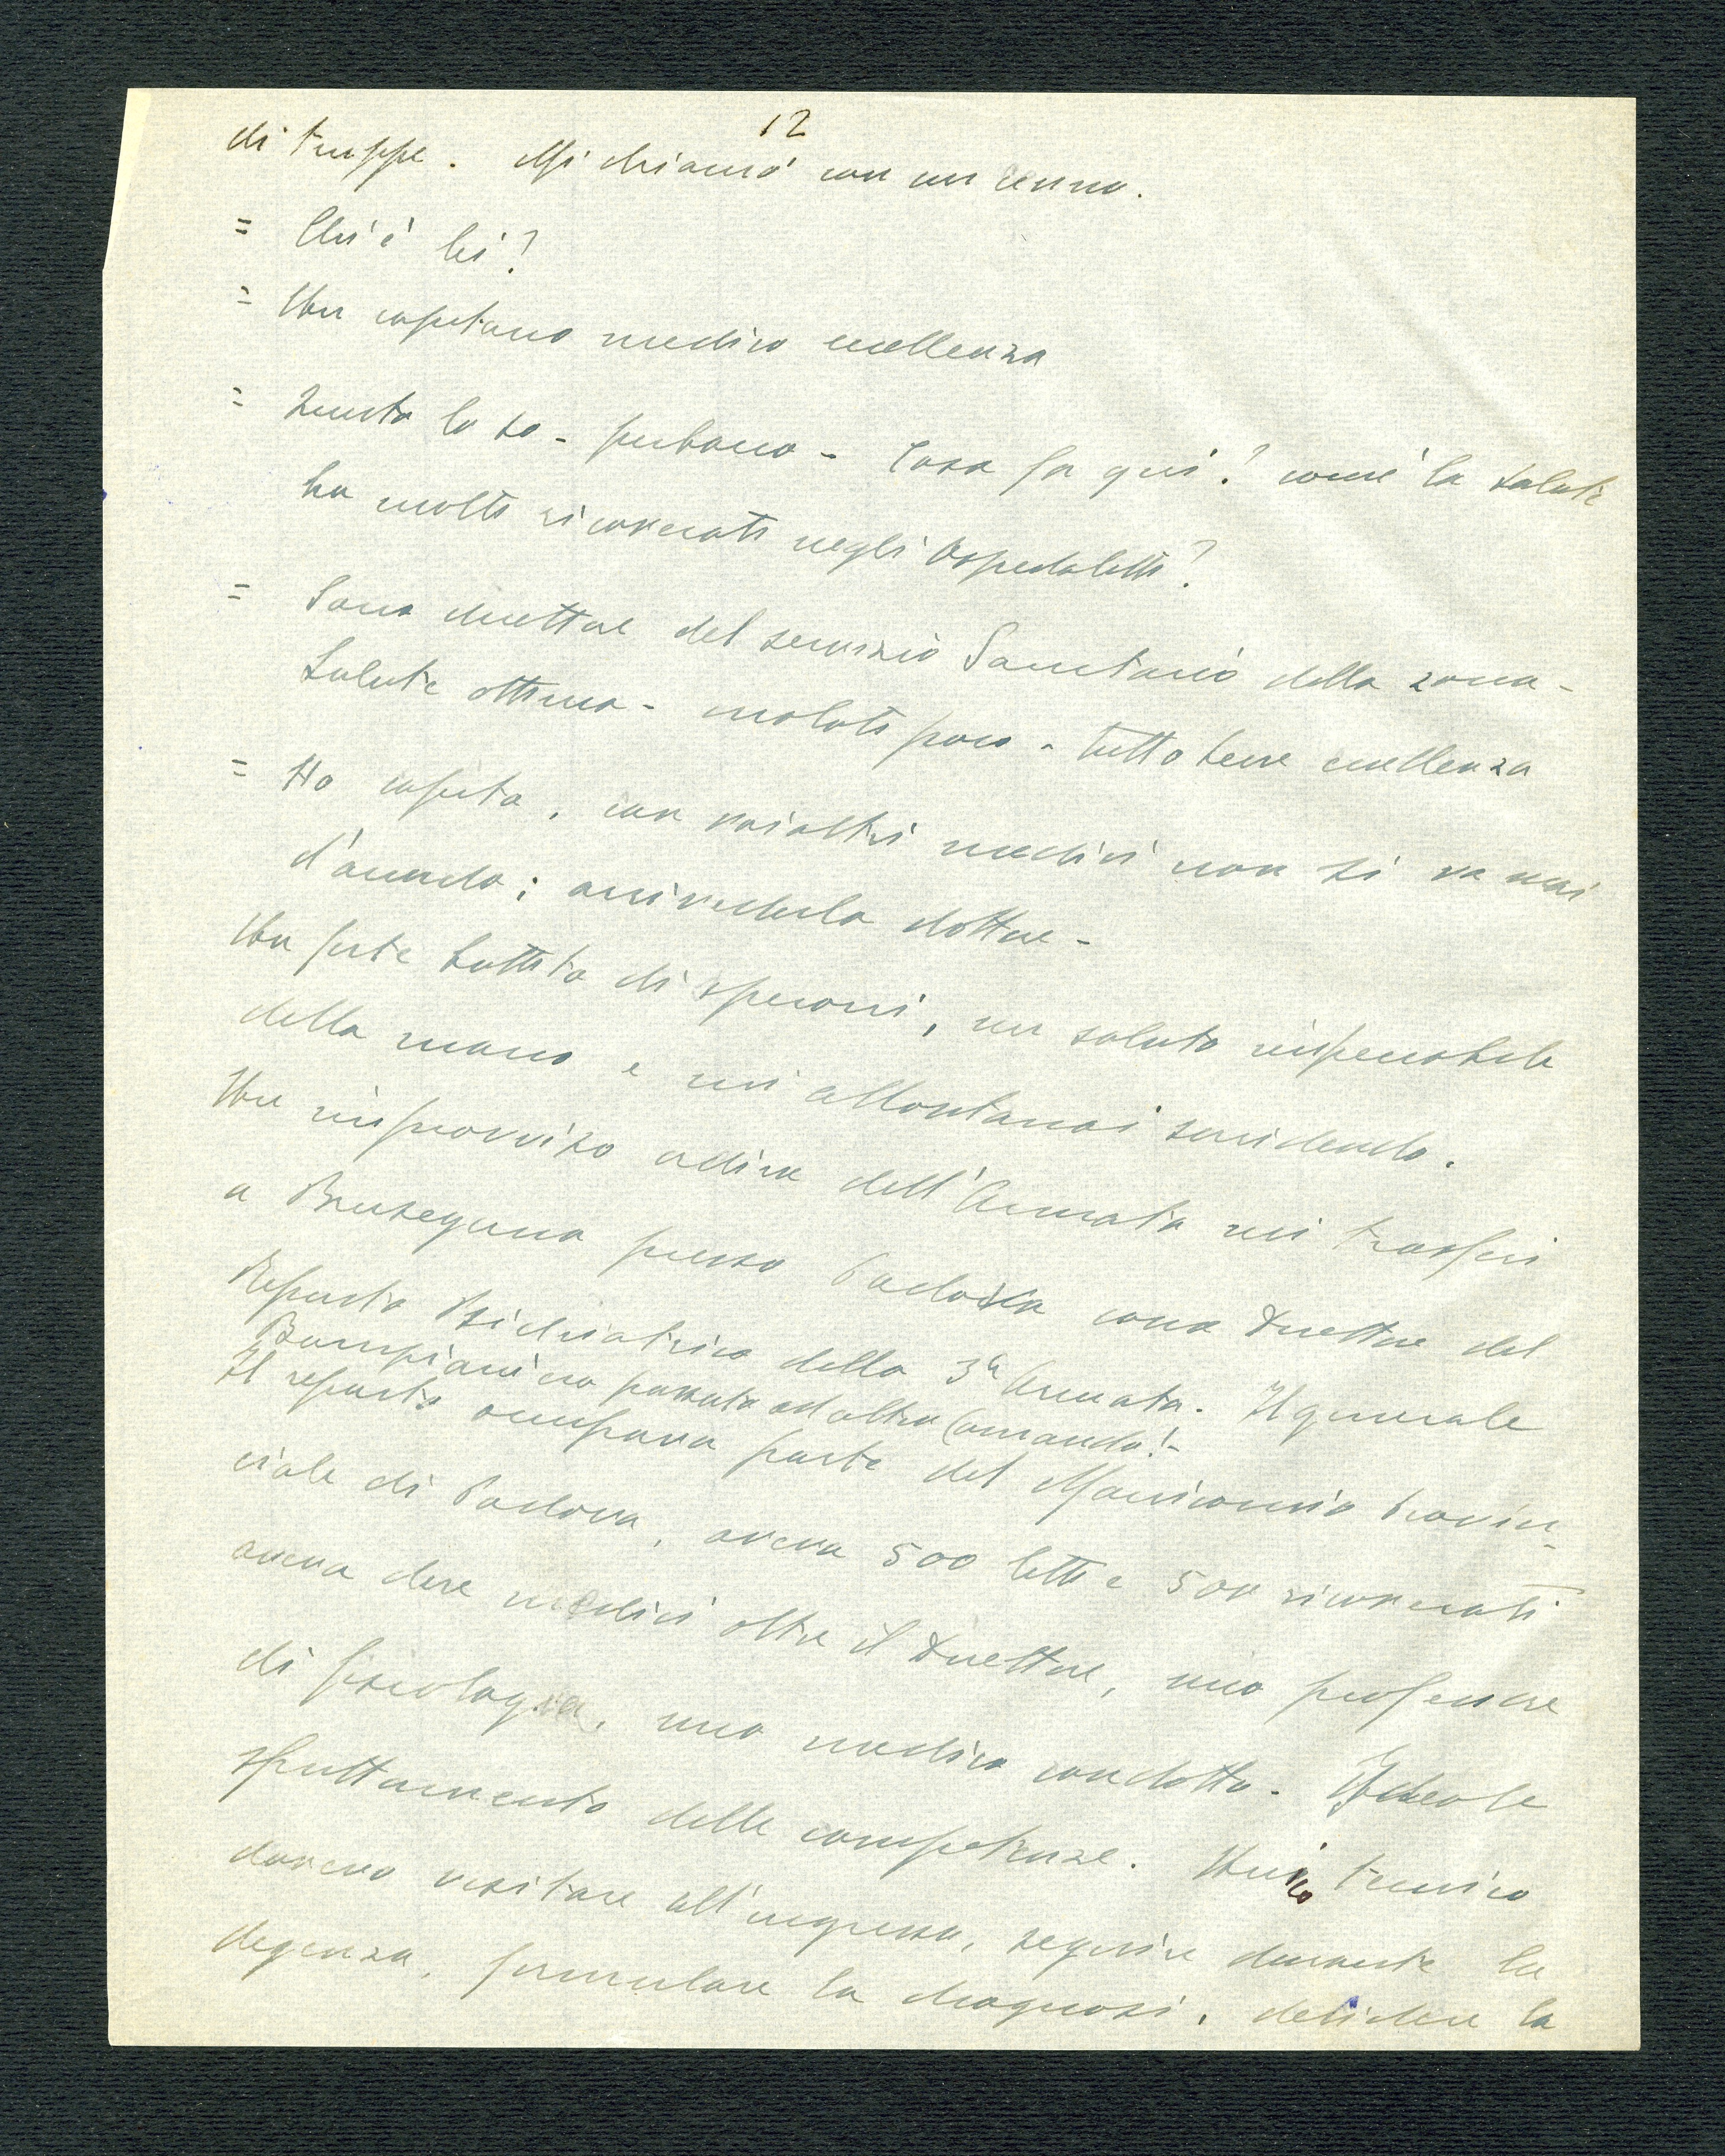 12
di truppe. Mi chiamò con un cenno.
= Chi è lei?
= Un capitano medico eccellenza
= Questo lo so - perbacco - Cosa fa qui? com'è la salute
ha molti ricoverati negli Ospedaletti?
= Sono direttore del servizio Sanitario della zona -
Salute ottima - malati pochi - tutto bene eccellenza
= Ho capito, con voialtri medici non si va mai
d'accordo; arrivederla dottore -
Un forte battito di speroni, un saluto impeccabile
della mano e mi allontanai sorridendo.
Un improvviso ordine dell'Armata mi trasferì
a Brusegana presso Padova come Direttore del
Reparto Psichiatrico della 3ª Armata. Il generale
Bumpiani era passato ad altro Comando! -
Il reparto occupava parte del Manicomio Provin-
ciale di Padova, aveva 500 letti e 500 ricoverati
aveva due medici oltre il Direttore, uno professore
di fisiologia, uno medico condotto. Ideale
sfruttamento delle competenze. Unico tecnico
dovevo visitare all'ingresso, seguire durante la
degenza, formulare la diagnosi, decidere la